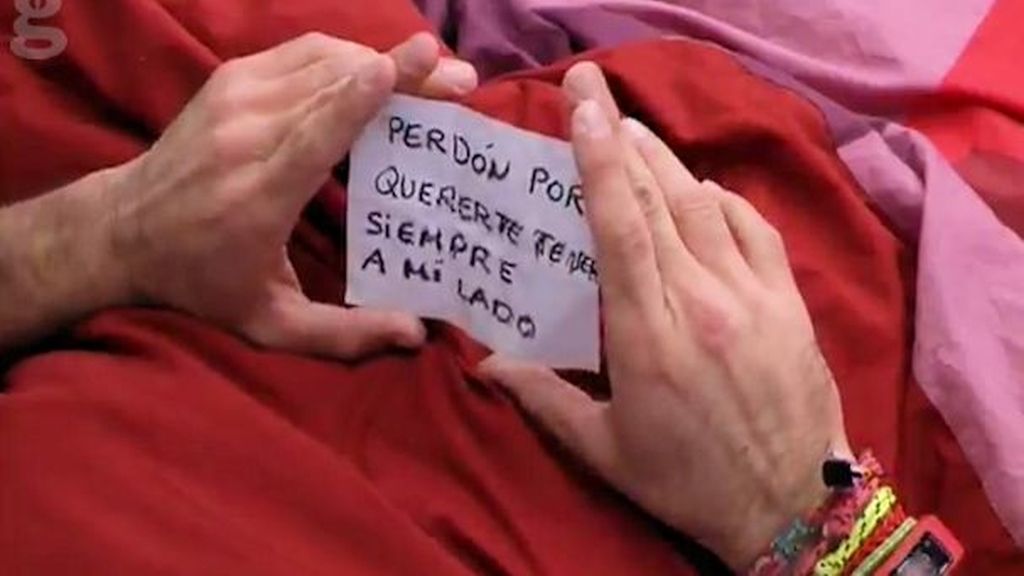 PERDÓN POR
QUERERTE TENER
SIEMPRE
A MÍ LADO